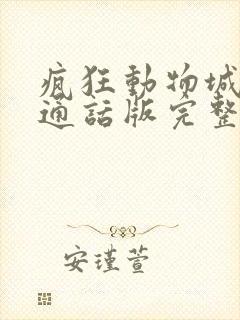 瘋狂動物城
通話版完整
安瑾萱